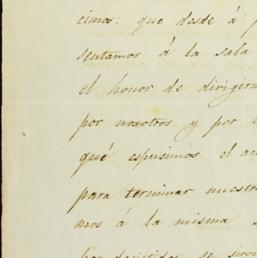 cimos: que desde á p
sentamos á la sala
el honor de dirigirn
por nosotros y por
qué espusimos el ac
para terminar nuestr
mos á la misma